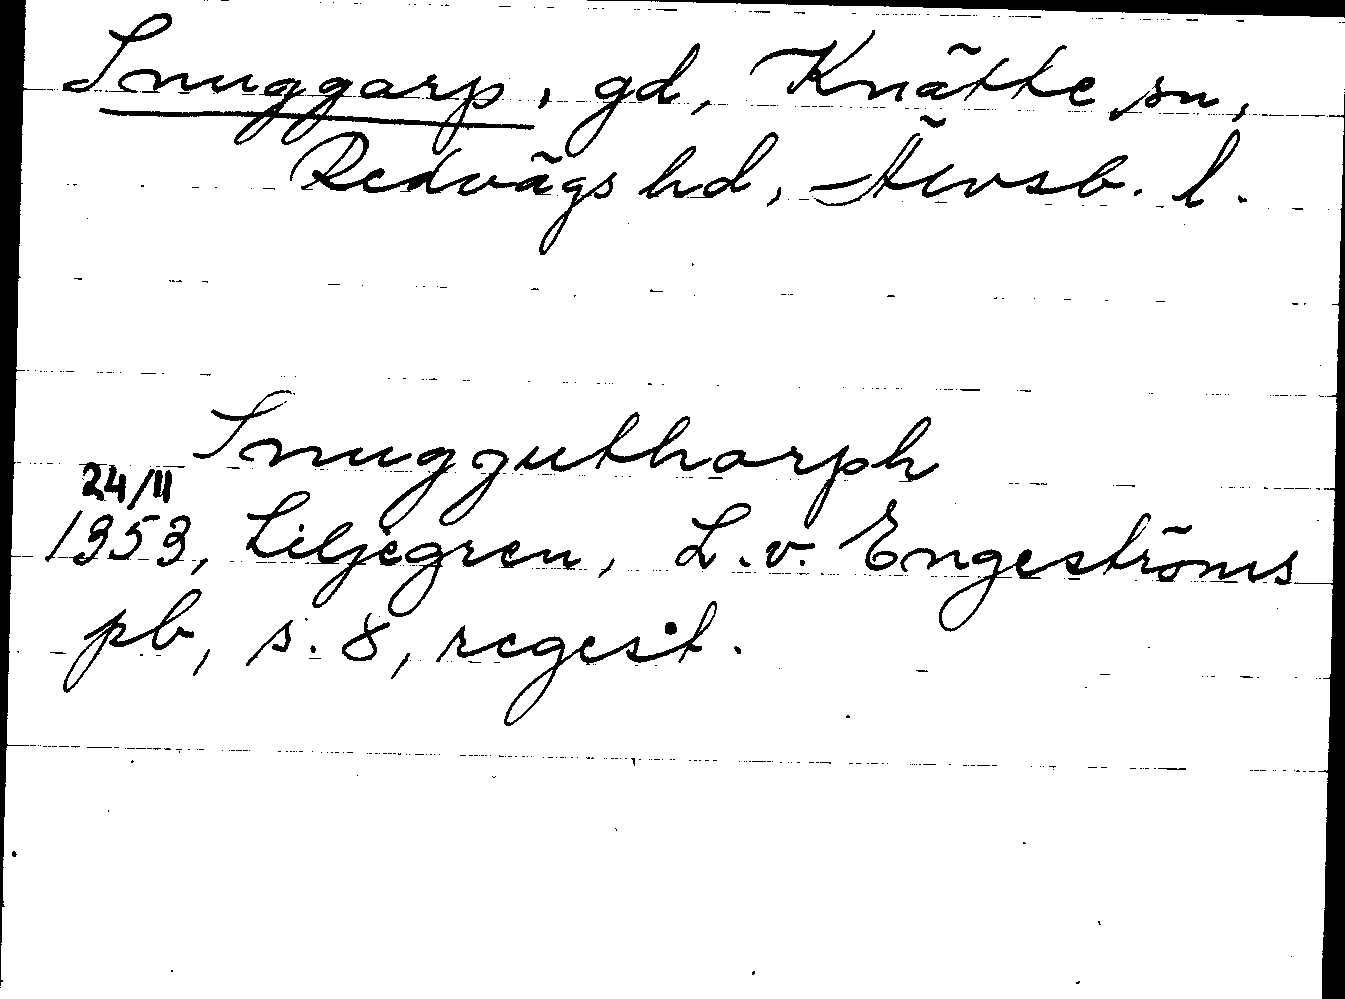 Snuggarp, gd, Knätte sn,
Redvägs hd, Älvsb. l.
Snugguthorph
24/11
1353, Liljegren, L. v. Engeströms
pb, s. 8, regest.